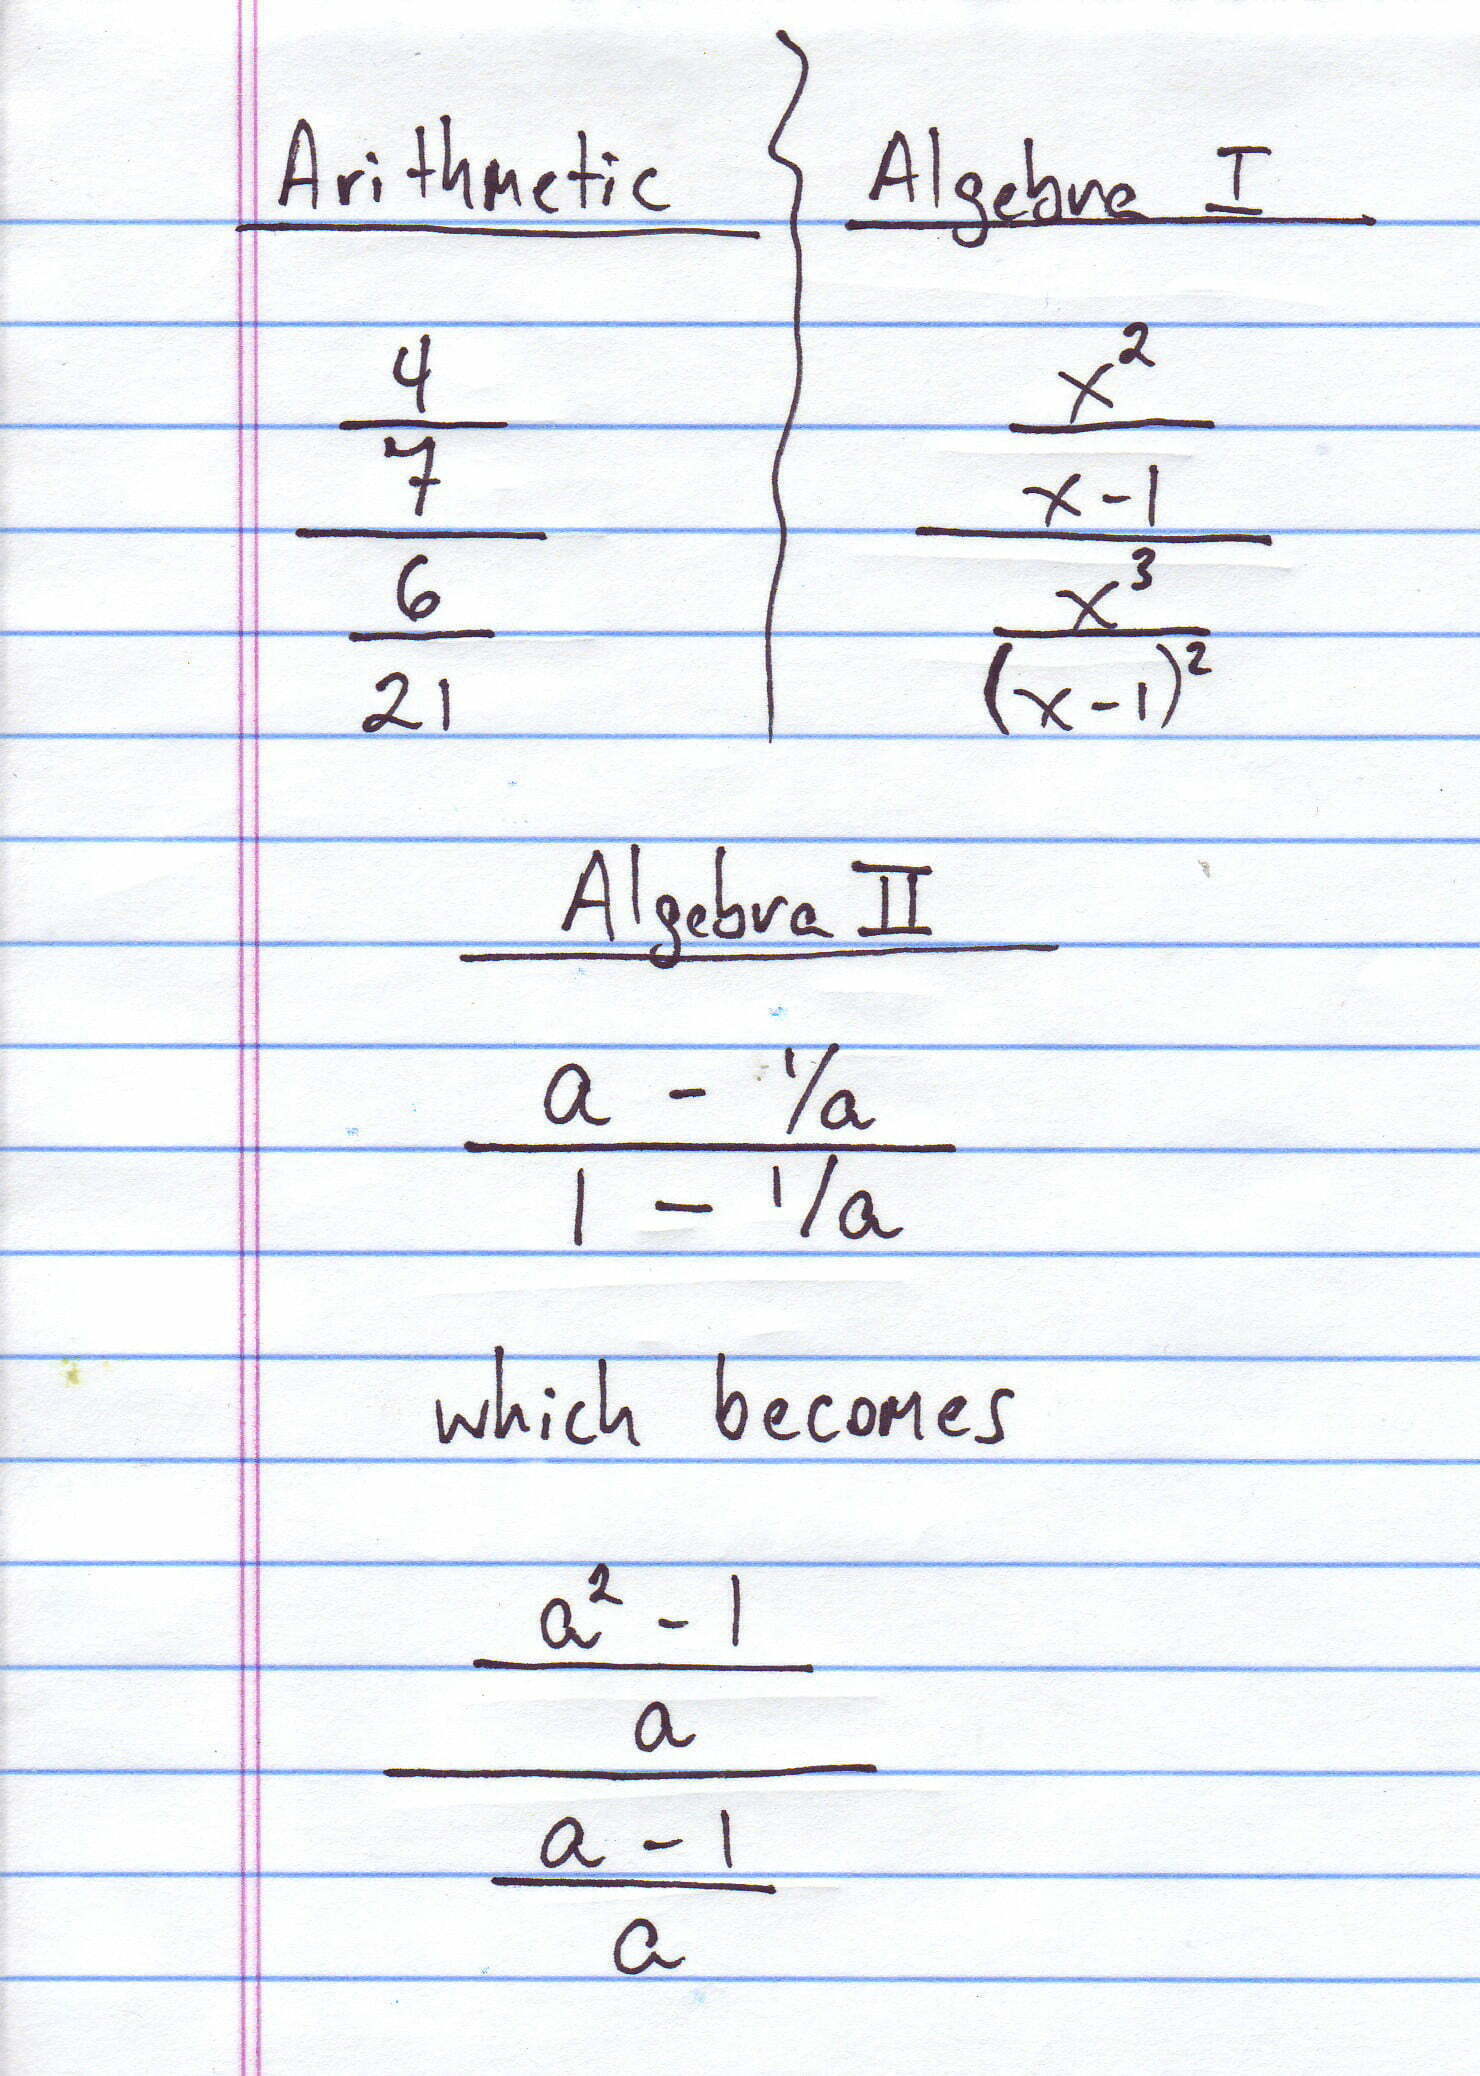 Arithmetic
4
7
6
21
Algebra I
x²
x-1
x³
(x-1)²
Algebra II
a - 1/a
1 - 1/a
which becomes
a² - 1
a
a - 1
a